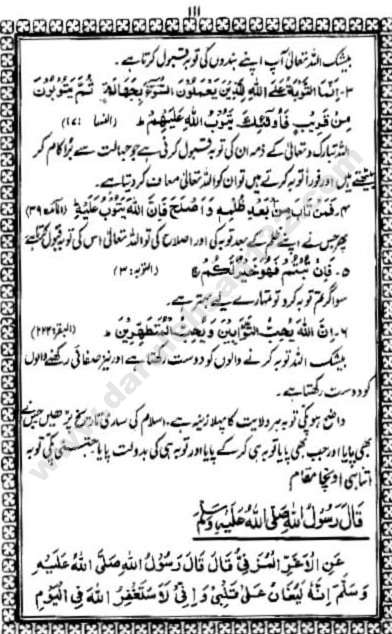 ااا
بیشک اللہ تعالیٰ آپ اپنے بندوں کی توبہ قبول کرتا ہے۔
۳۔ اِنَّمَا التَّوْبَةُ عَلَى اللهِ لِلَّذِيْنَ يَعْمَلُوْنَ السُّوْٓءَ بِجَهَالَةٍ ثُمَّ يَتُوْبُوْنَ
مِنْ قَرِيْبٍ فَاُولٰٓئِكَ يَتُوْبُ اللهُ عَلَيْهِمْ ط (النسا ۱۷)
اللہ تبارک وتعالیٰ کے ذمہ ان کی توبہ قبول کرنی ہے جو جہالت سے بُرا کام کر
بیٹھتے ہیں اور فوراً توبہ کرتے ہیں تو ان کو اللہ تعالیٰ معاف کر دیتا ہے۔
۴۔ فَمَنْ تَابَ مِنْۢ بَعْدِ ظُلْمِهٖ وَ اَصْلَحَ فَاِنَّ اللهَ يَتُوْبُ عَلَيْهِ (المائدہ ۳۹)
پھر جس نے اپنے ظلم کے بعد توبہ کی اور اصلاح کی تو اللہ تعالیٰ اس کی توبہ قبول کرتا ہے
۵۔ فَاِنْ تُبْتُمْ فَهُوَ خَيْرٌ لَّكُمْ (التوبہ : ۳)
سو اگر تم توبہ کرو تو تمہارے لیے بہتر ہے۔
۶۔ اِنَّ اللهَ يُحِبُّ التَّوَّابِيْنَ وَيُحِبُّ الْمُتَطَهِّرِيْنَ ط (البقرہ ۲۲۲)
بیشک اللہ توبہ کرنے والوں کو دوست رکھتا ہے اور نیز صفائی رکھنے والوں
کو دوست رکھتا ہے۔
واضح ہو کہ توبہ ہر ولایت کا پہلا زینہ ہے، اسلام کی ساری تاریخ پڑھیں جس نے
بھی پایا اور جب بھی پایا توبہ ہی کر کے پایا اور توبہ ہی کی بدولت پایا جتنی جس کی توبہ
اتنا ہی اونچا مقام
قَالَ رَسُوْلُ اللهِ صَلَّى اللهُ عَلَيْهِ وَسَلَّمَ
عَنِ الْاَغَرِّ الْمُزَنِيِّ قَالَ قَالَ رَسُوْلُ اللهِ صَلَّى اللهُ عَلَيْهِ
وَسَلَّمَ اِنَّهٗ لَيُغَانُ عَلٰى قَلْبِيْ وَ اِنِّيْ لَاَسْتَغْفِرُ اللهَ فِي الْيَوْمِ